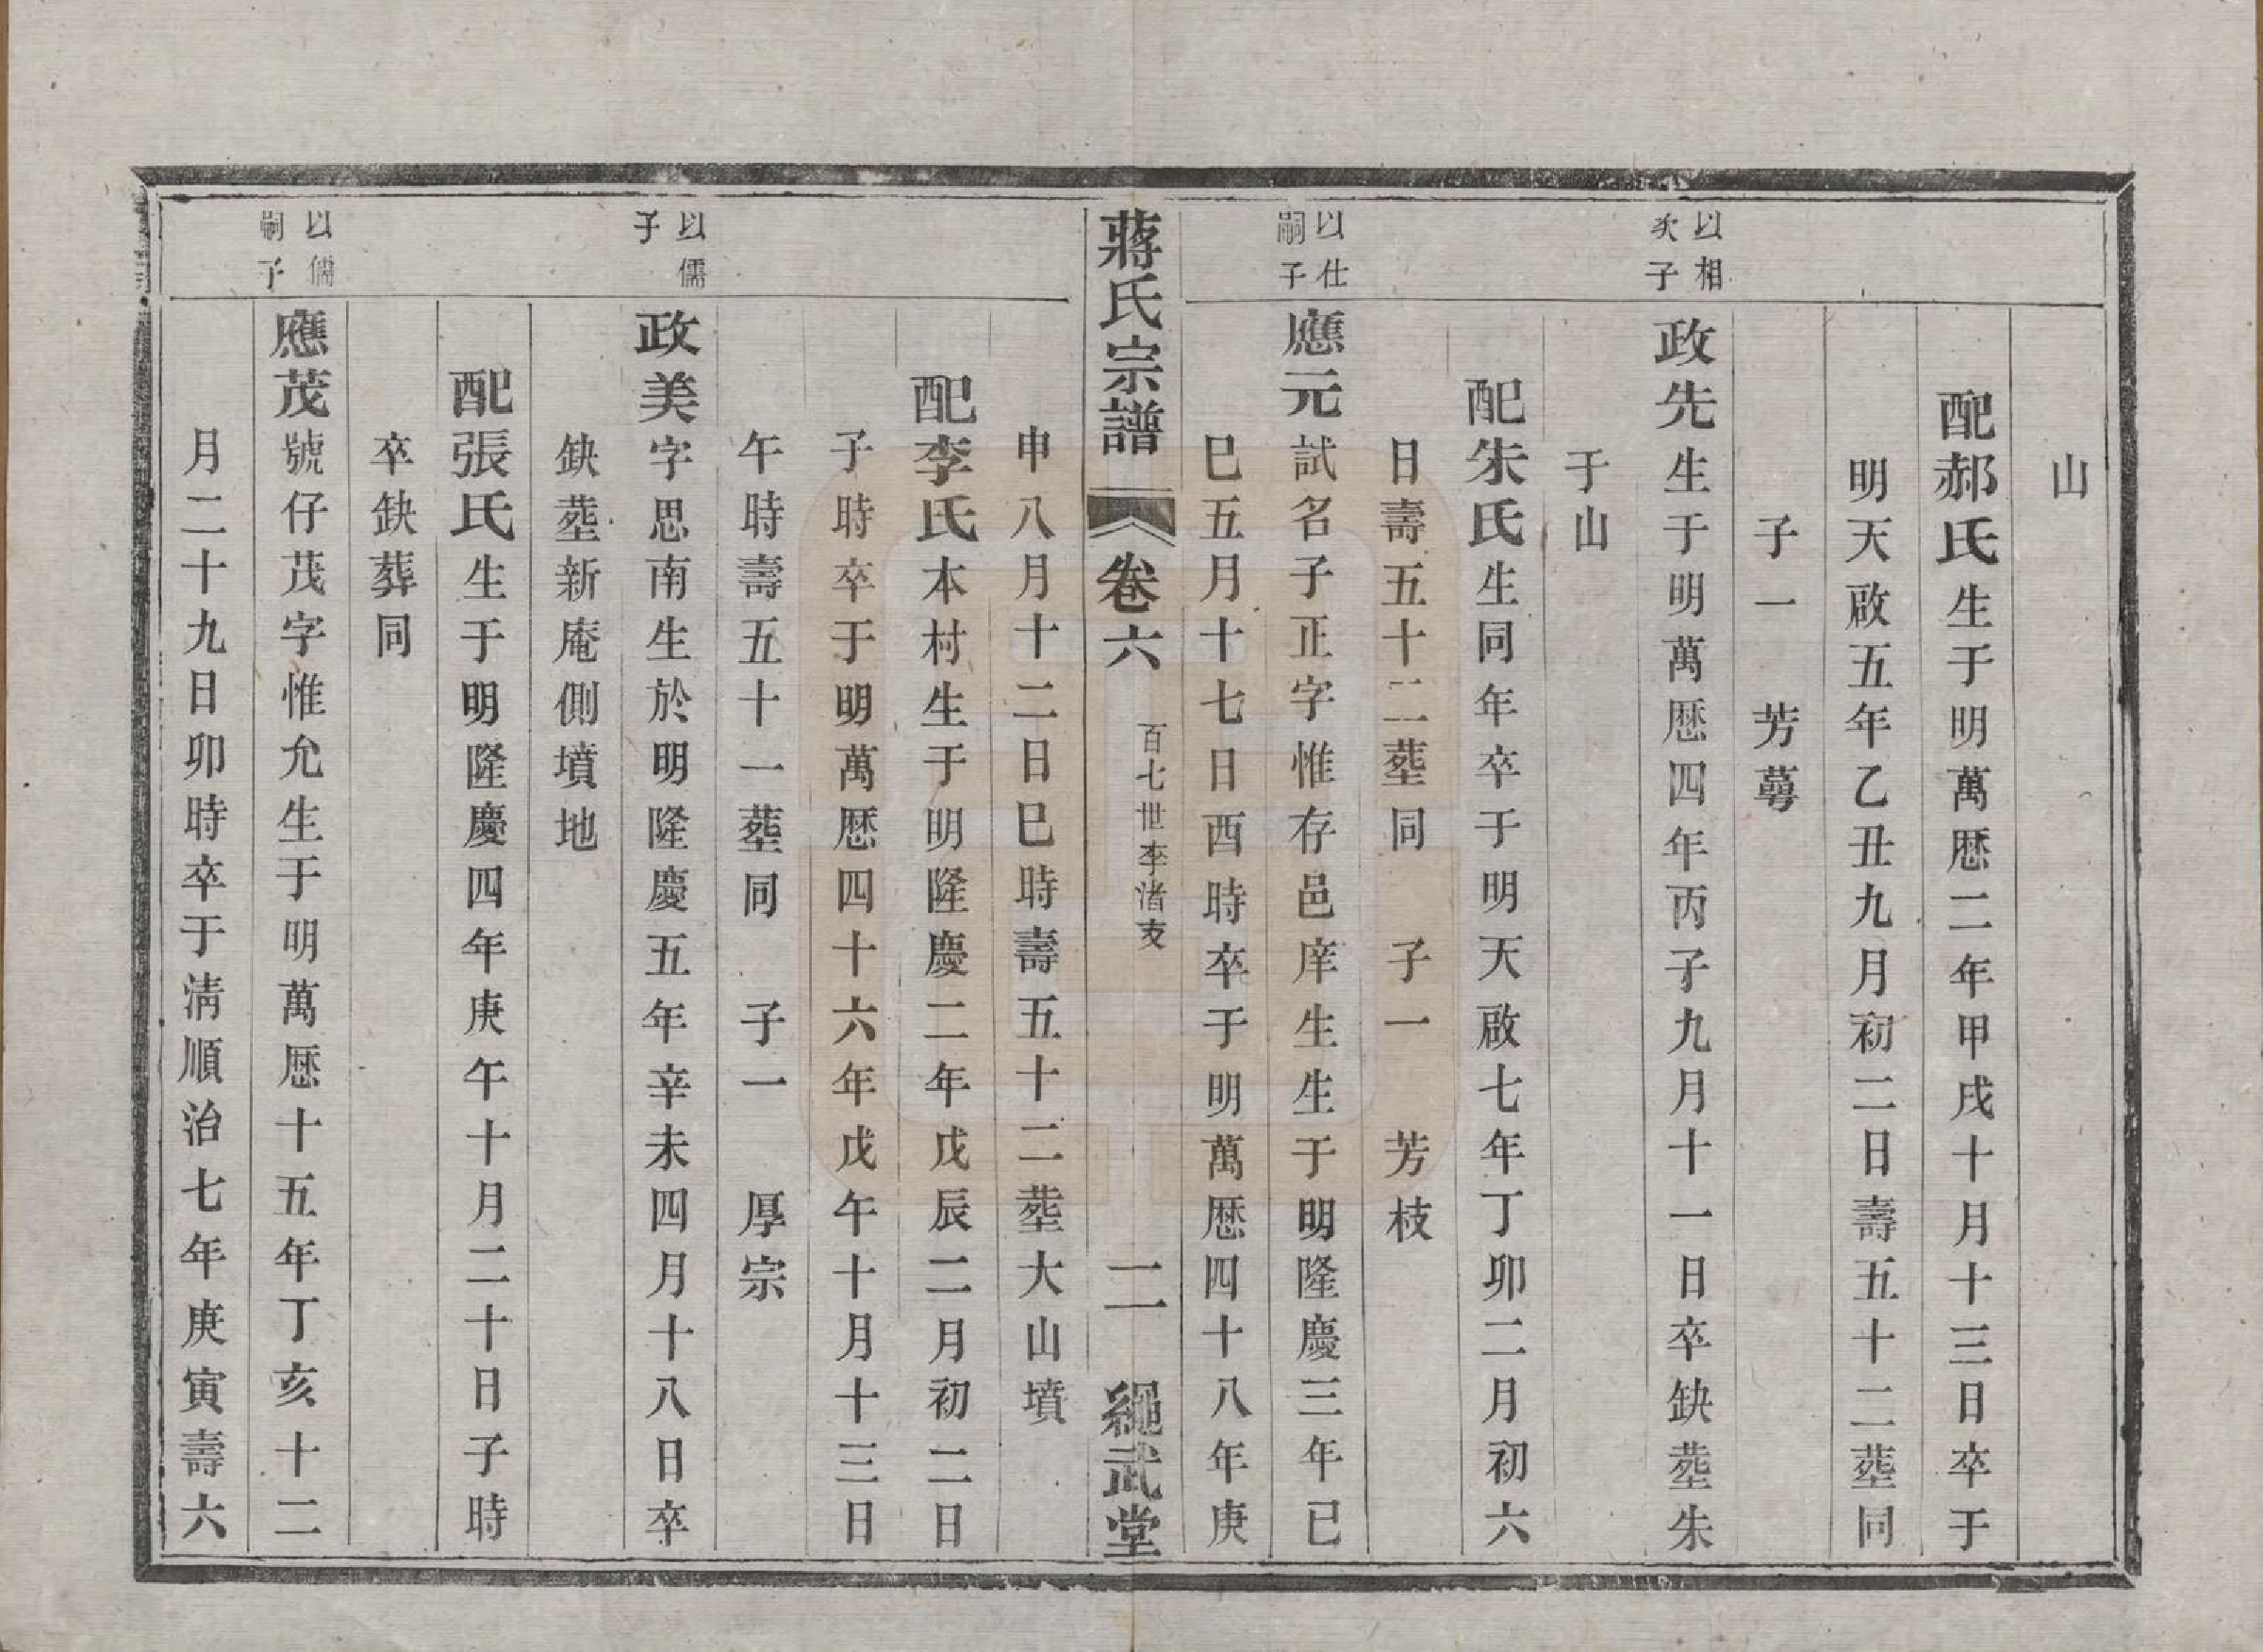 山
配郝氏生于明萬厯二年甲戌十月十三日卒于
明天啟五年乙丑九月初二日壽五十二塟同
子一　芳蕚
以相
次子
政先生于明萬厯四年丙子九月十一日卒缺塟朱
于山
配朱氏生同年卒于明天啟七年丁卯二月初六
日壽五十二塟同　子一　芳枝
以仕
嗣子
應元試名子正字惟存邑庠生生于明隆慶三年已
巳五月十七日酉時卒于明萬厯四十八年庚
蔣氏宗譜　卷六　百七世李渚支　二　繩武堂
申八月十二日巳時壽五十二塟大山墳
配李氏本村生于明隆慶二年戊辰二月初二日
子時卒于明萬厯四十六年戊午十月十三日
午時壽五十一塟同　子一　厚宗
以儒
子
政美字思南生於明隆慶五年辛未四月十八日卒
缺塟新庵側墳地
配張氏生于明隆慶四年庚午十月二十日子時
卒缺葬同
以儒
嗣子
應茂號仔茂字惟允生于明萬厯十五年丁亥十二
月二十九日卯時卒于清順治七年庚寅壽六